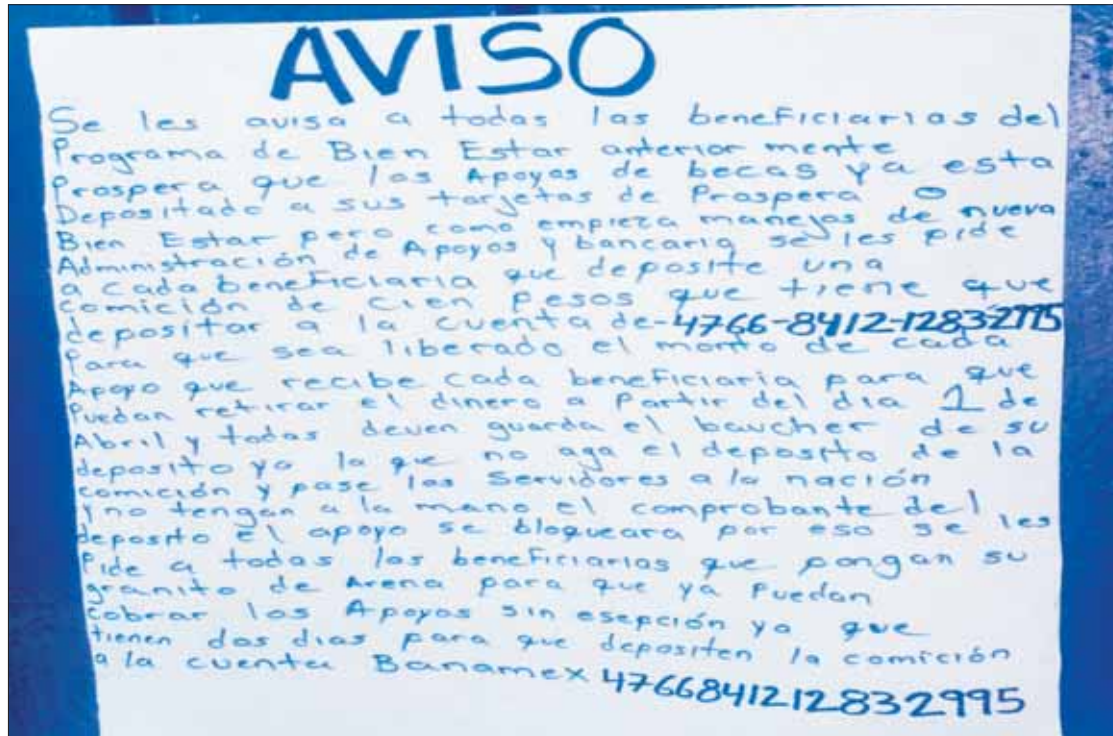 AVISO
Se les avisa a todas las beneficiarias del
Programa de Bien Estar anterior mente
Prospera que los Apoyos de becas ya esta
Depositado a sus tarjetas de Prospera o
Bien Estar pero como empieza manejos de nueva
Administración de Apoyos y bancaria se les pide
a cada beneficiaria que deposite una
comición de Cien pesos que tiene que
depositar a la cuenta de-4766-8412-1283-2995
Para que sea liberado el monto de cada
Apoyo que recibe cada beneficiaria para que
Puedan retirar el dinero a Partir del dia 1 de
Abril y todas deven guarda el baucher de su
deposito ya la que no aga el deposito de la
comición y pase los Servidores a la nación
y no tengan a la mano el comprobante del
deposito el apoyo se bloqueara por eso se les
Pide a todas las beneficiarias que pongan su
granito de Arena para que ya Puedan
Cobrar los Apoyos sin esepción ya que
tienen dos dias para que depositen la comición
a la cuenta Banamex 4766841212832995